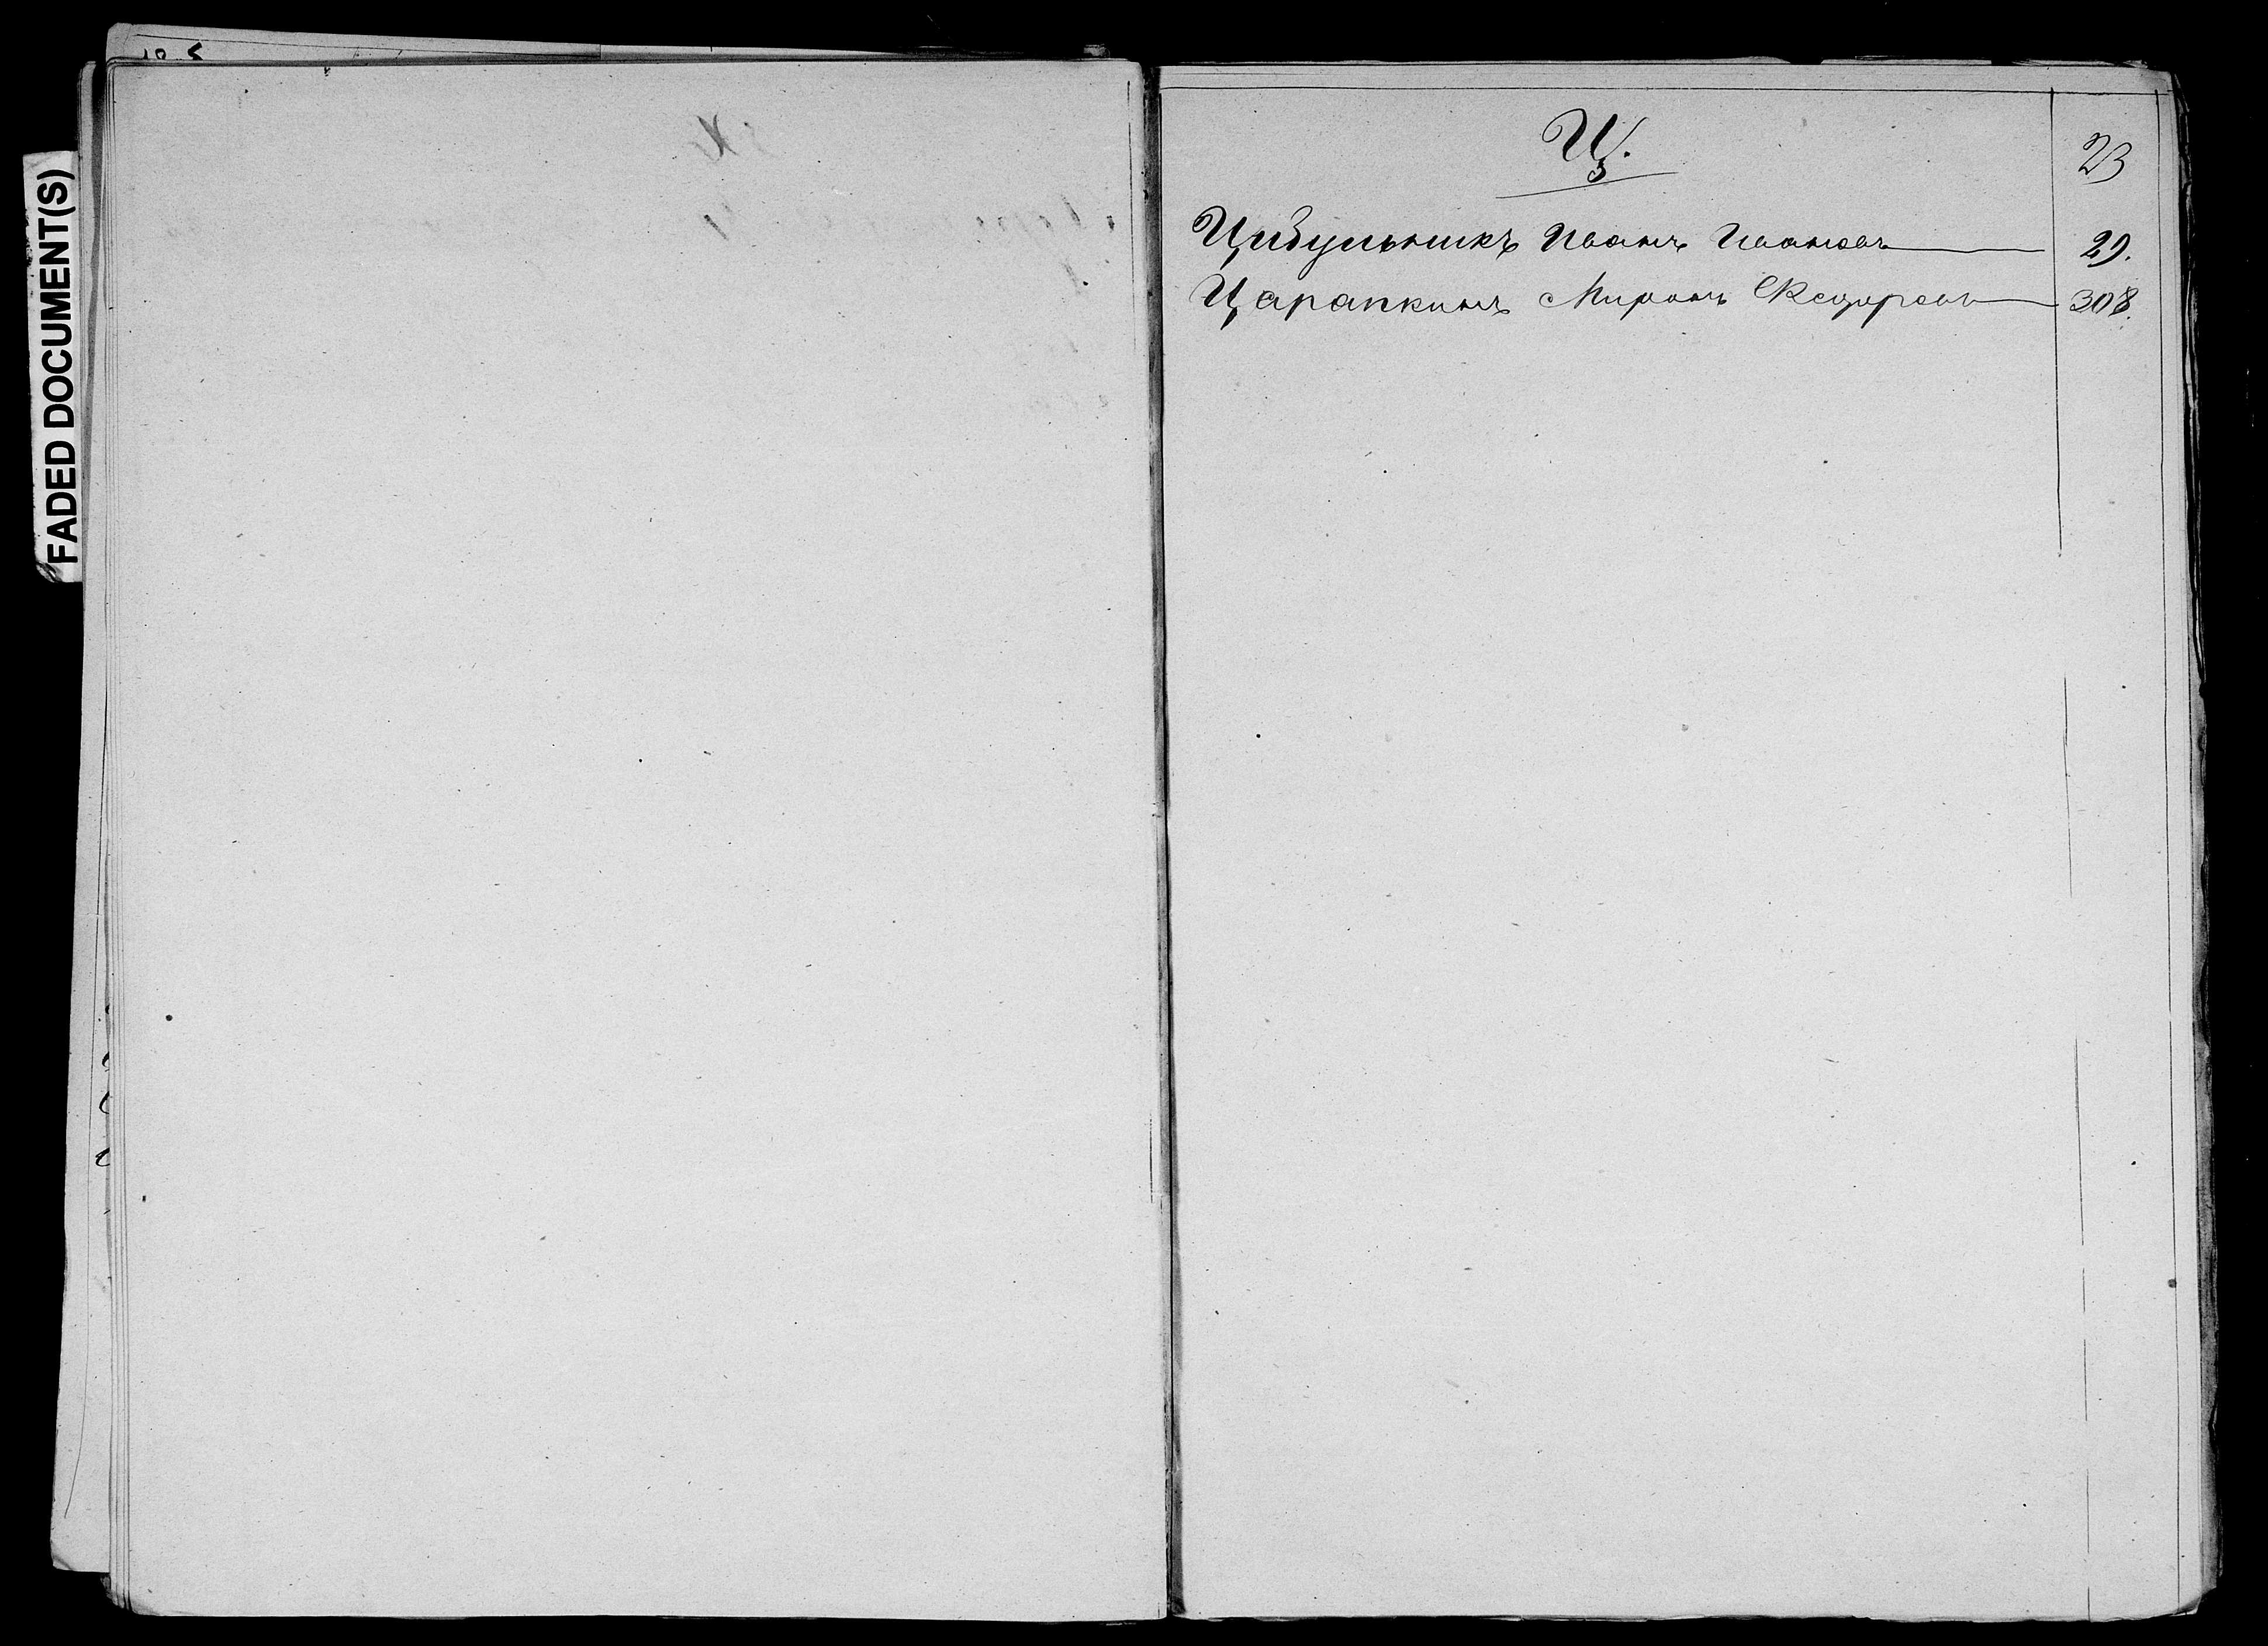 FADED DOCUMENT(S)
Ц.
23
Цибульникъ Иванъ Ивановъ 29.
Царапкинъ Миронъ 308.